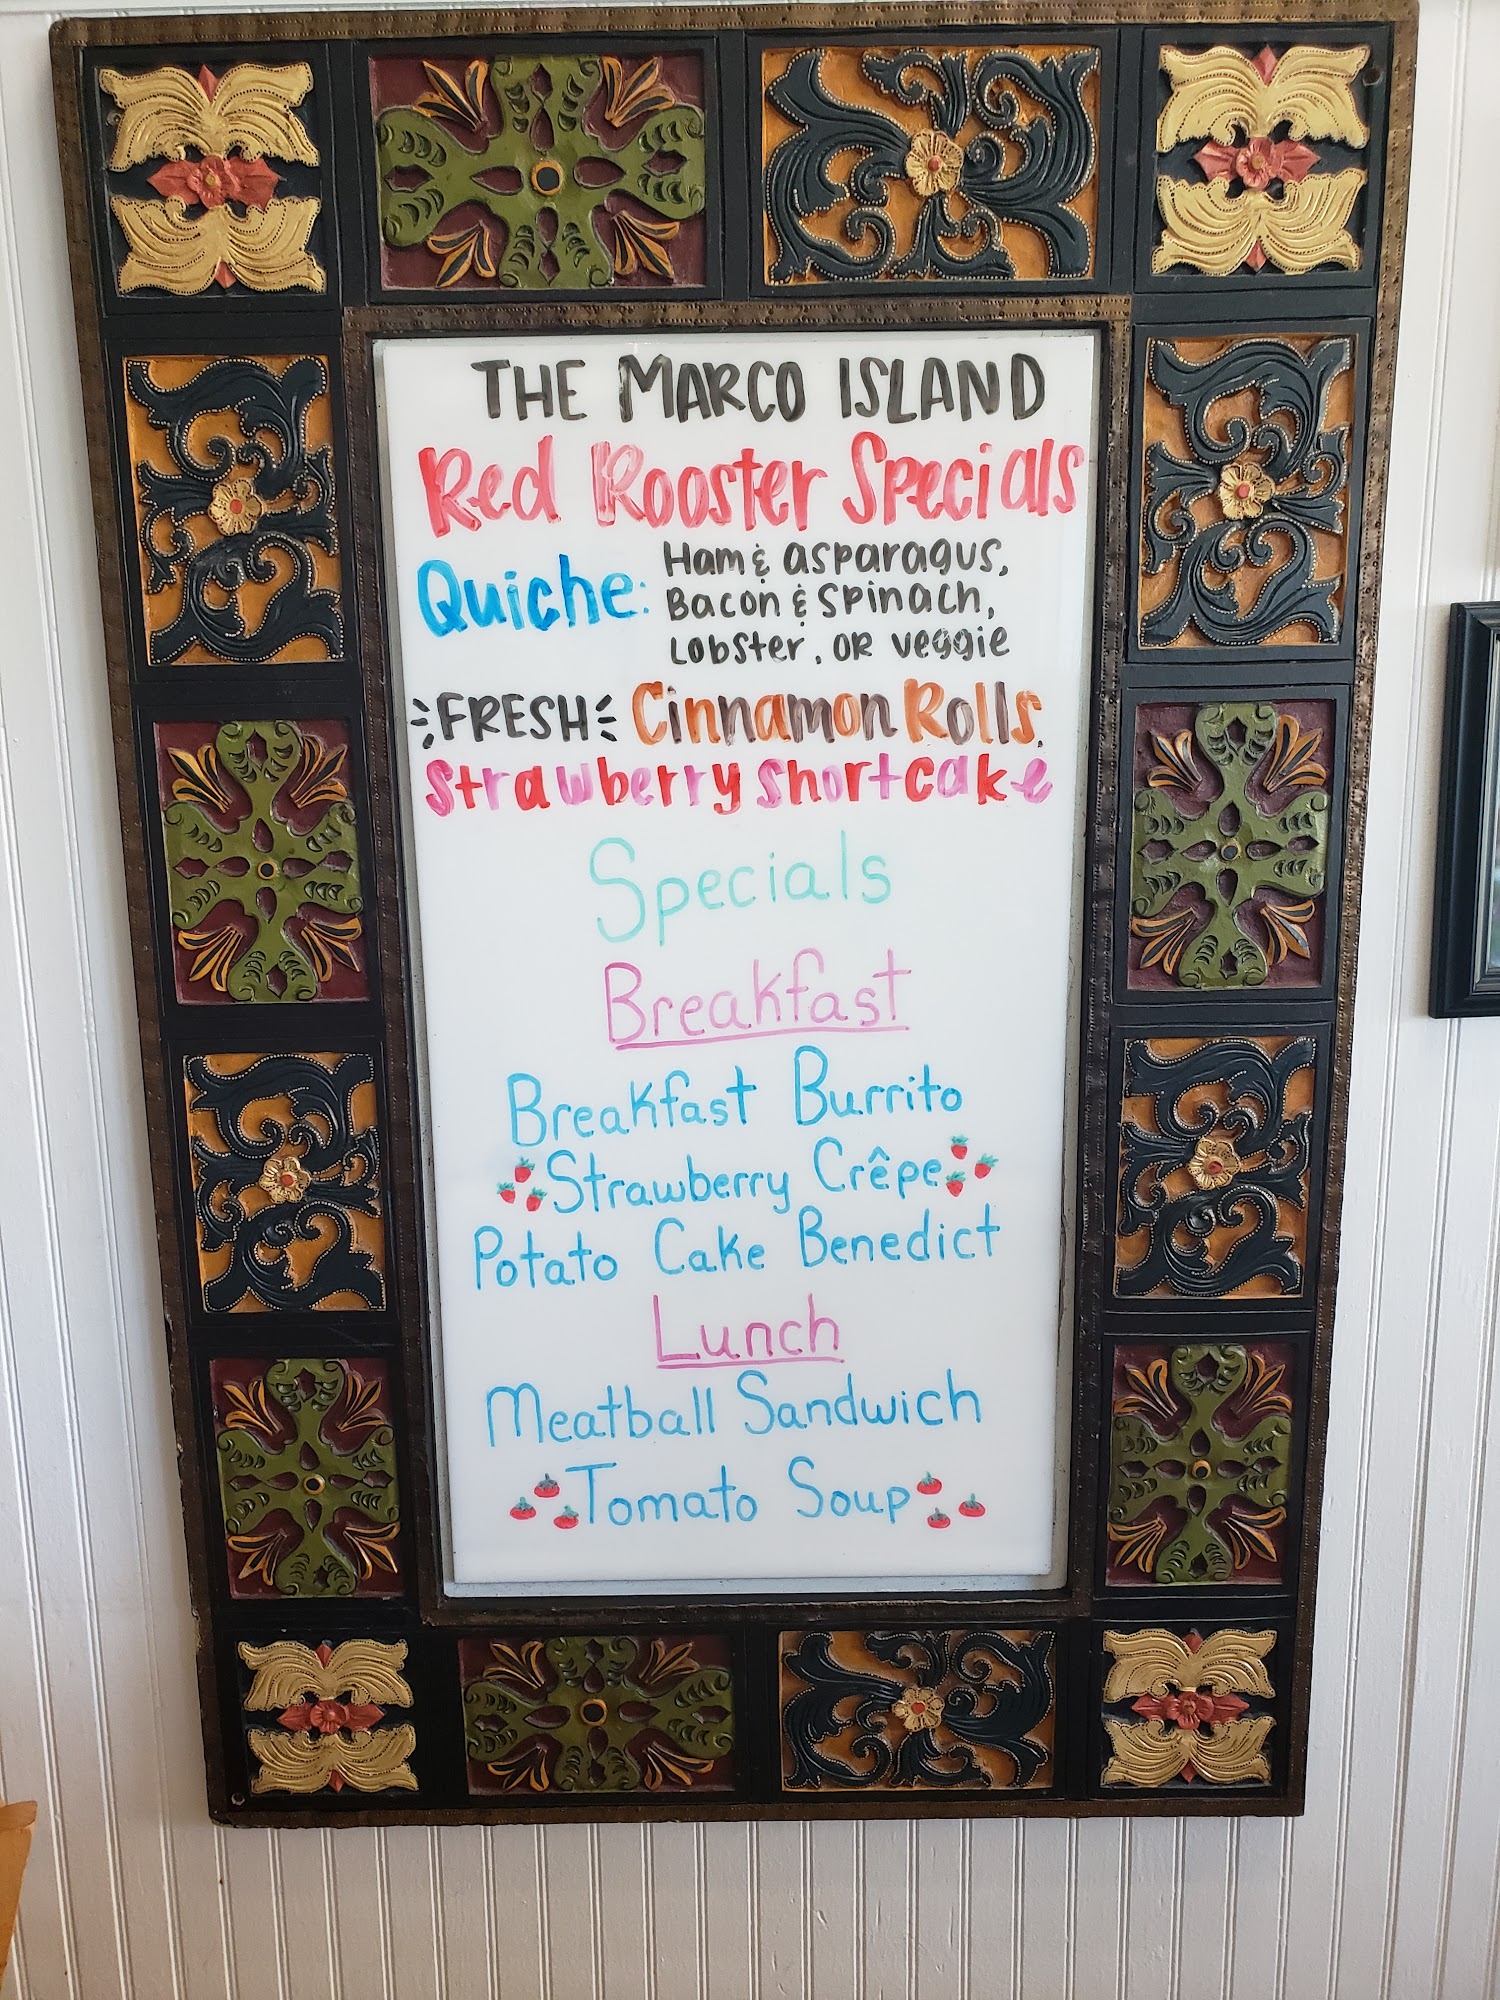 THE MARCO ISLAND
Red Rooster Specials
Quiche: Ham & asparagus,
Bacon & spinach,
Lobster, or veggie
FRESH Cinnamon Rolls,
Strawberry shortcake
Specials
Breakfast
Breakfast Burrito
Strawberry Crêpe
Potato Cake Benedict
Lunch
Meatball Sandwich
Tomato Soup